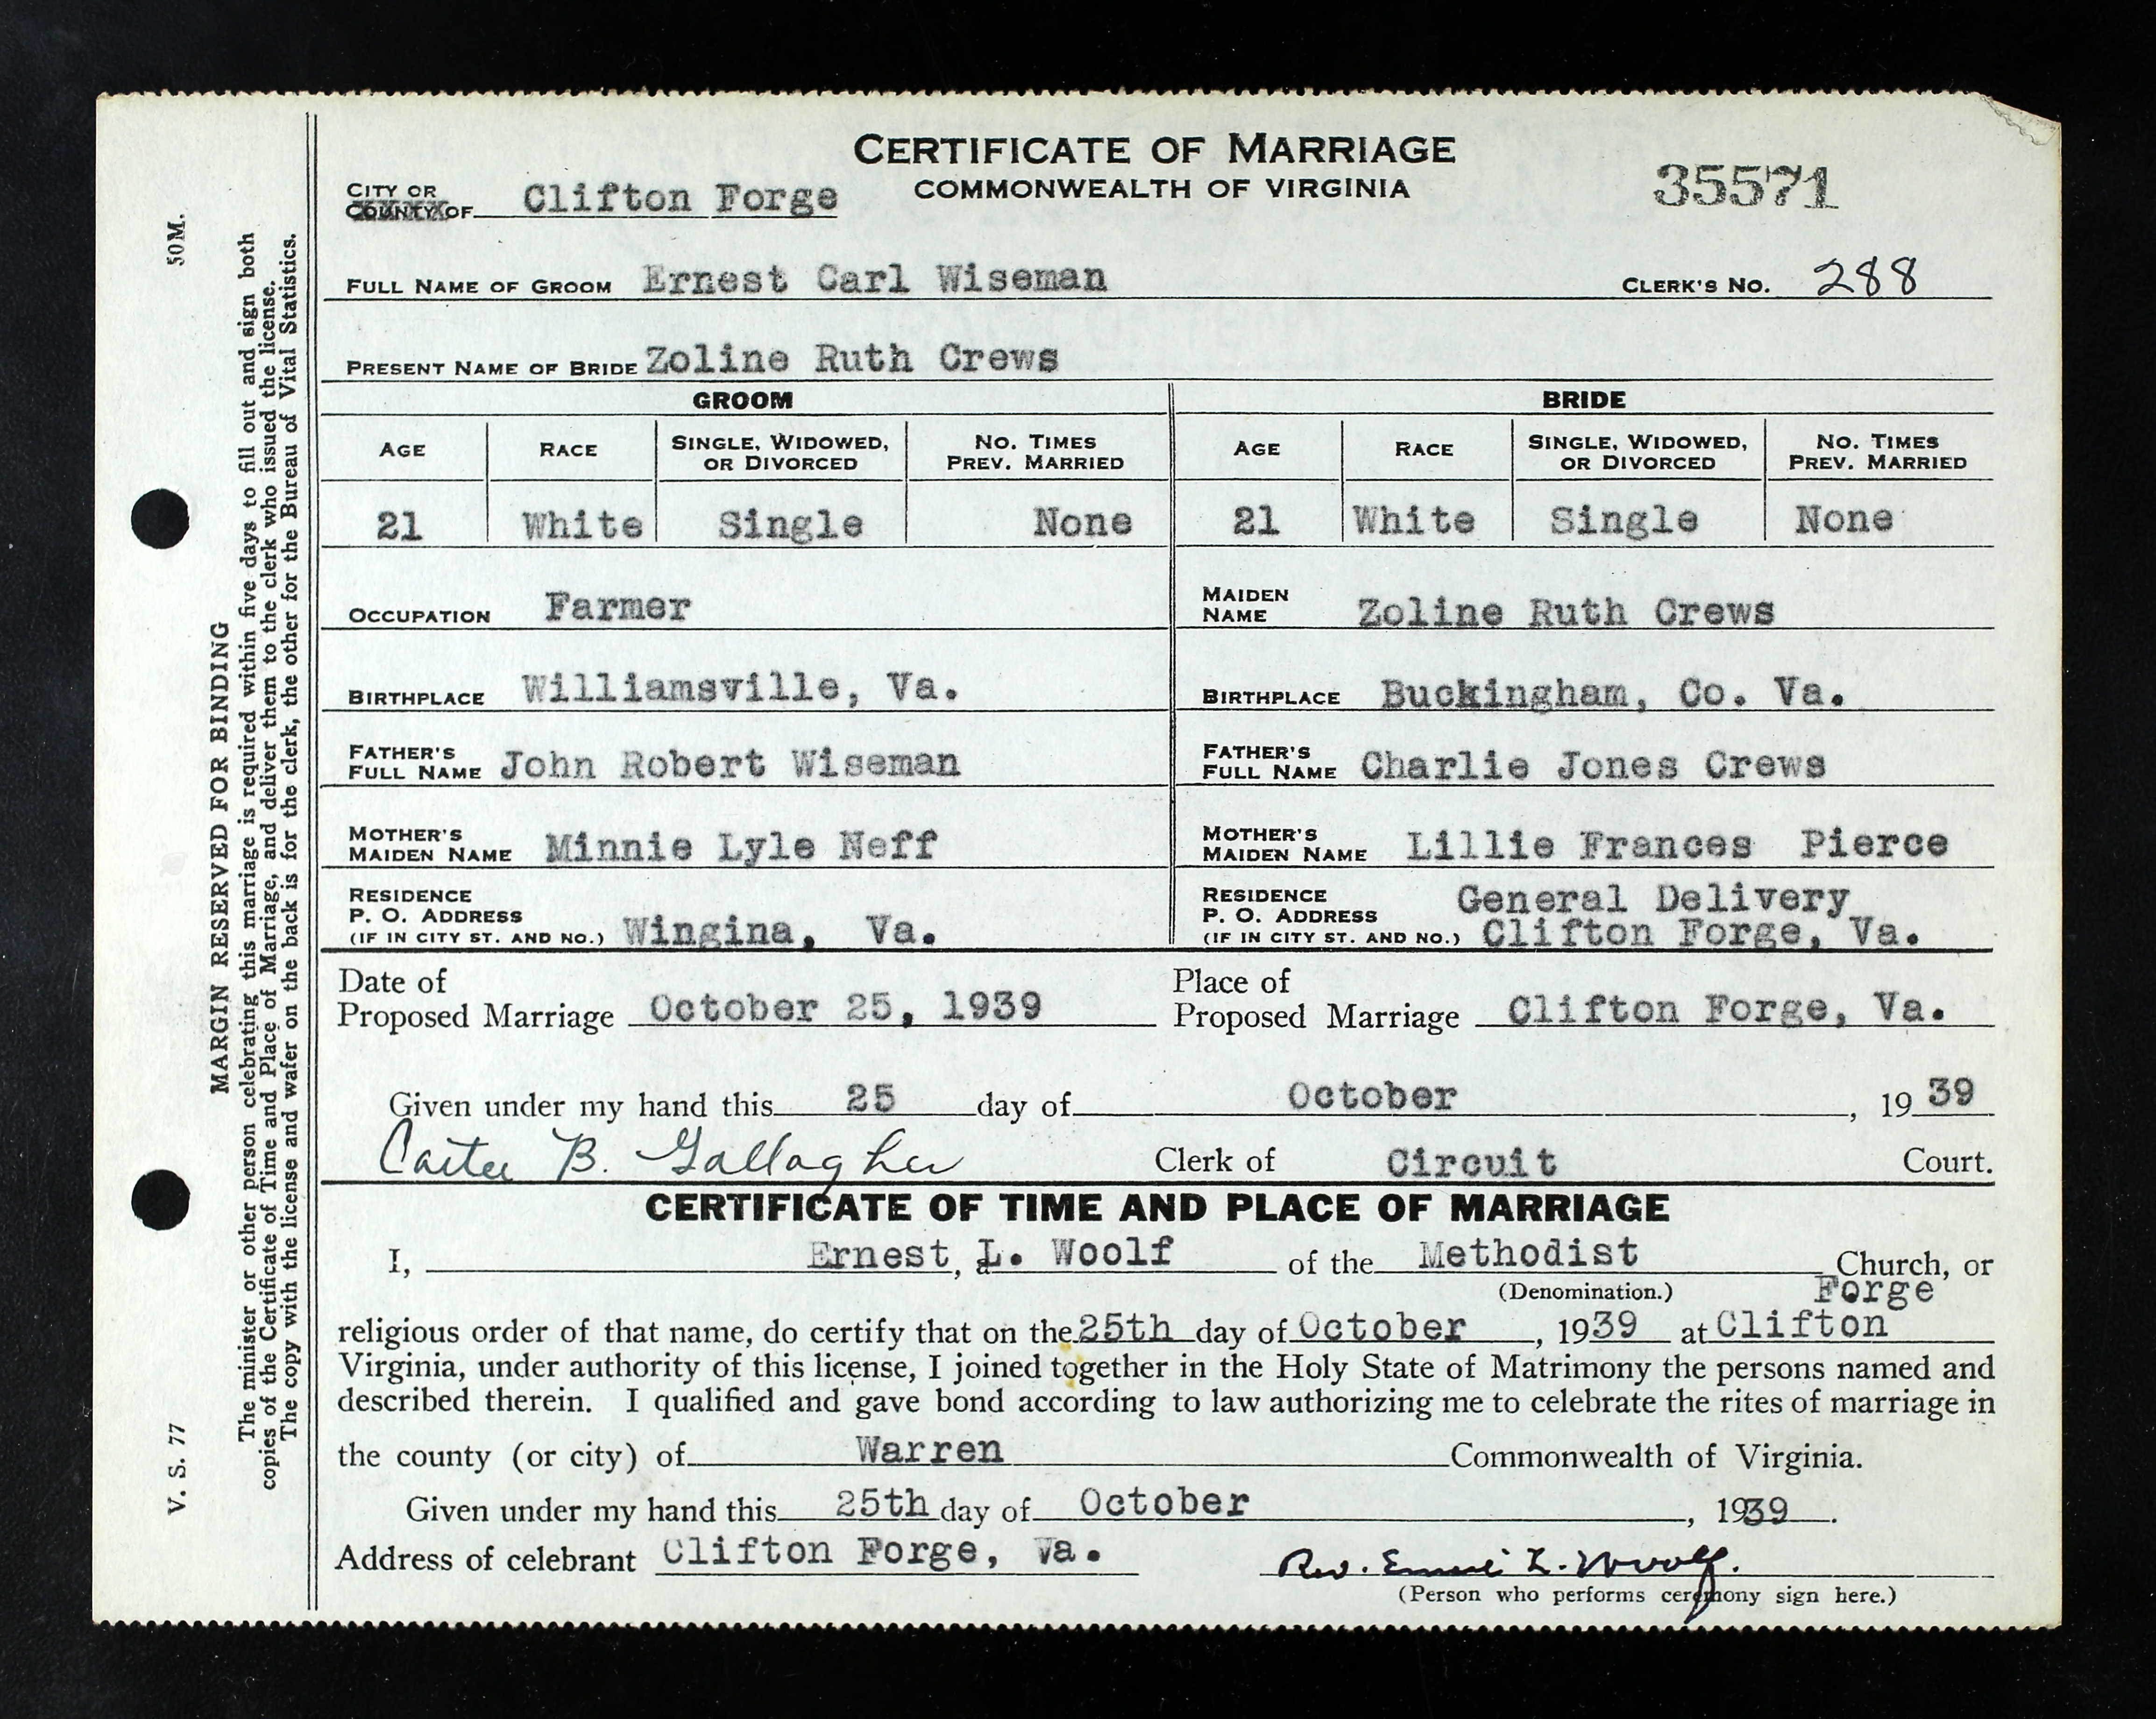 CERTIFICATE OF MARRIAGE
COMMONWEALTH OF VIRGINIA
35571
CITY OR
COUNTY OF Clifton Forge
FULL NAME OF GROOM Ernest Carl Wiseman CLERK'S NO. 288
PRESENT NAME OF BRIDE Zoline Ruth Crews
GROOM BRIDE
AGE RACE SINGLE, WIDOWED, OR DIVORCED NO. TIMES PREV. MARRIED AGE RACE SINGLE, WIDOWED, OR DIVORCED NO. TIMES PREV. MARRIED
21 White Single None 21 White Single None
OCCUPATION Farmer MAIDEN NAME Zoline Ruth Crews
BIRTHPLACE Williamsville, Va. BIRTHPLACE Buckingham, Co. Va.
FATHER'S FULL NAME John Robert Wiseman FATHER'S FULL NAME Charlie Jones Crews
MOTHER'S MAIDEN NAME Minnie Lyle Neff MOTHER'S MAIDEN NAME Lillie Frances Pierce
RESIDENCE P. O. ADDRESS (IF IN CITY ST. AND NO.) Wingina, Va. RESIDENCE P. O. ADDRESS (IF IN CITY ST. AND NO.) General Delivery Clifton Forge, Va.
Date of Proposed Marriage October 25, 1939 Place of Proposed Marriage Clifton Forge, Va.
Given under my hand this 25 day of October, 19 39
Carter B. Gallagher Clerk of Circuit Court.
CERTIFICATE OF TIME AND PLACE OF MARRIAGE
I, Ernest, L. Woolf of the Methodist Church, or
(Denomination.) Forge
religious order of that name, do certify that on the 25th day of October, 1939 at Clifton
Virginia, under authority of this license, I joined together in the Holy State of Matrimony the persons named and
described therein. I qualified and gave bond according to law authorizing me to celebrate the rites of marriage in
the county (or city) of Warren Commonwealth of Virginia.
Given under my hand this 25th day of October, 1939.
Address of celebrant Clifton Forge, Va. Rev. Ernest L. Woolf.
(Person who performs ceremony sign here.)
V. S. 77 50M.
MARGIN RESERVED FOR BINDING
The minister or other person celebrating this marriage is required within five days to fill out and sign both
copies of the Certificate of Time and Place of Marriage, and deliver them to the clerk who issued the license.
The copy with the license and wafer on the back is for the clerk, the other for the Bureau of Vital Statistics.